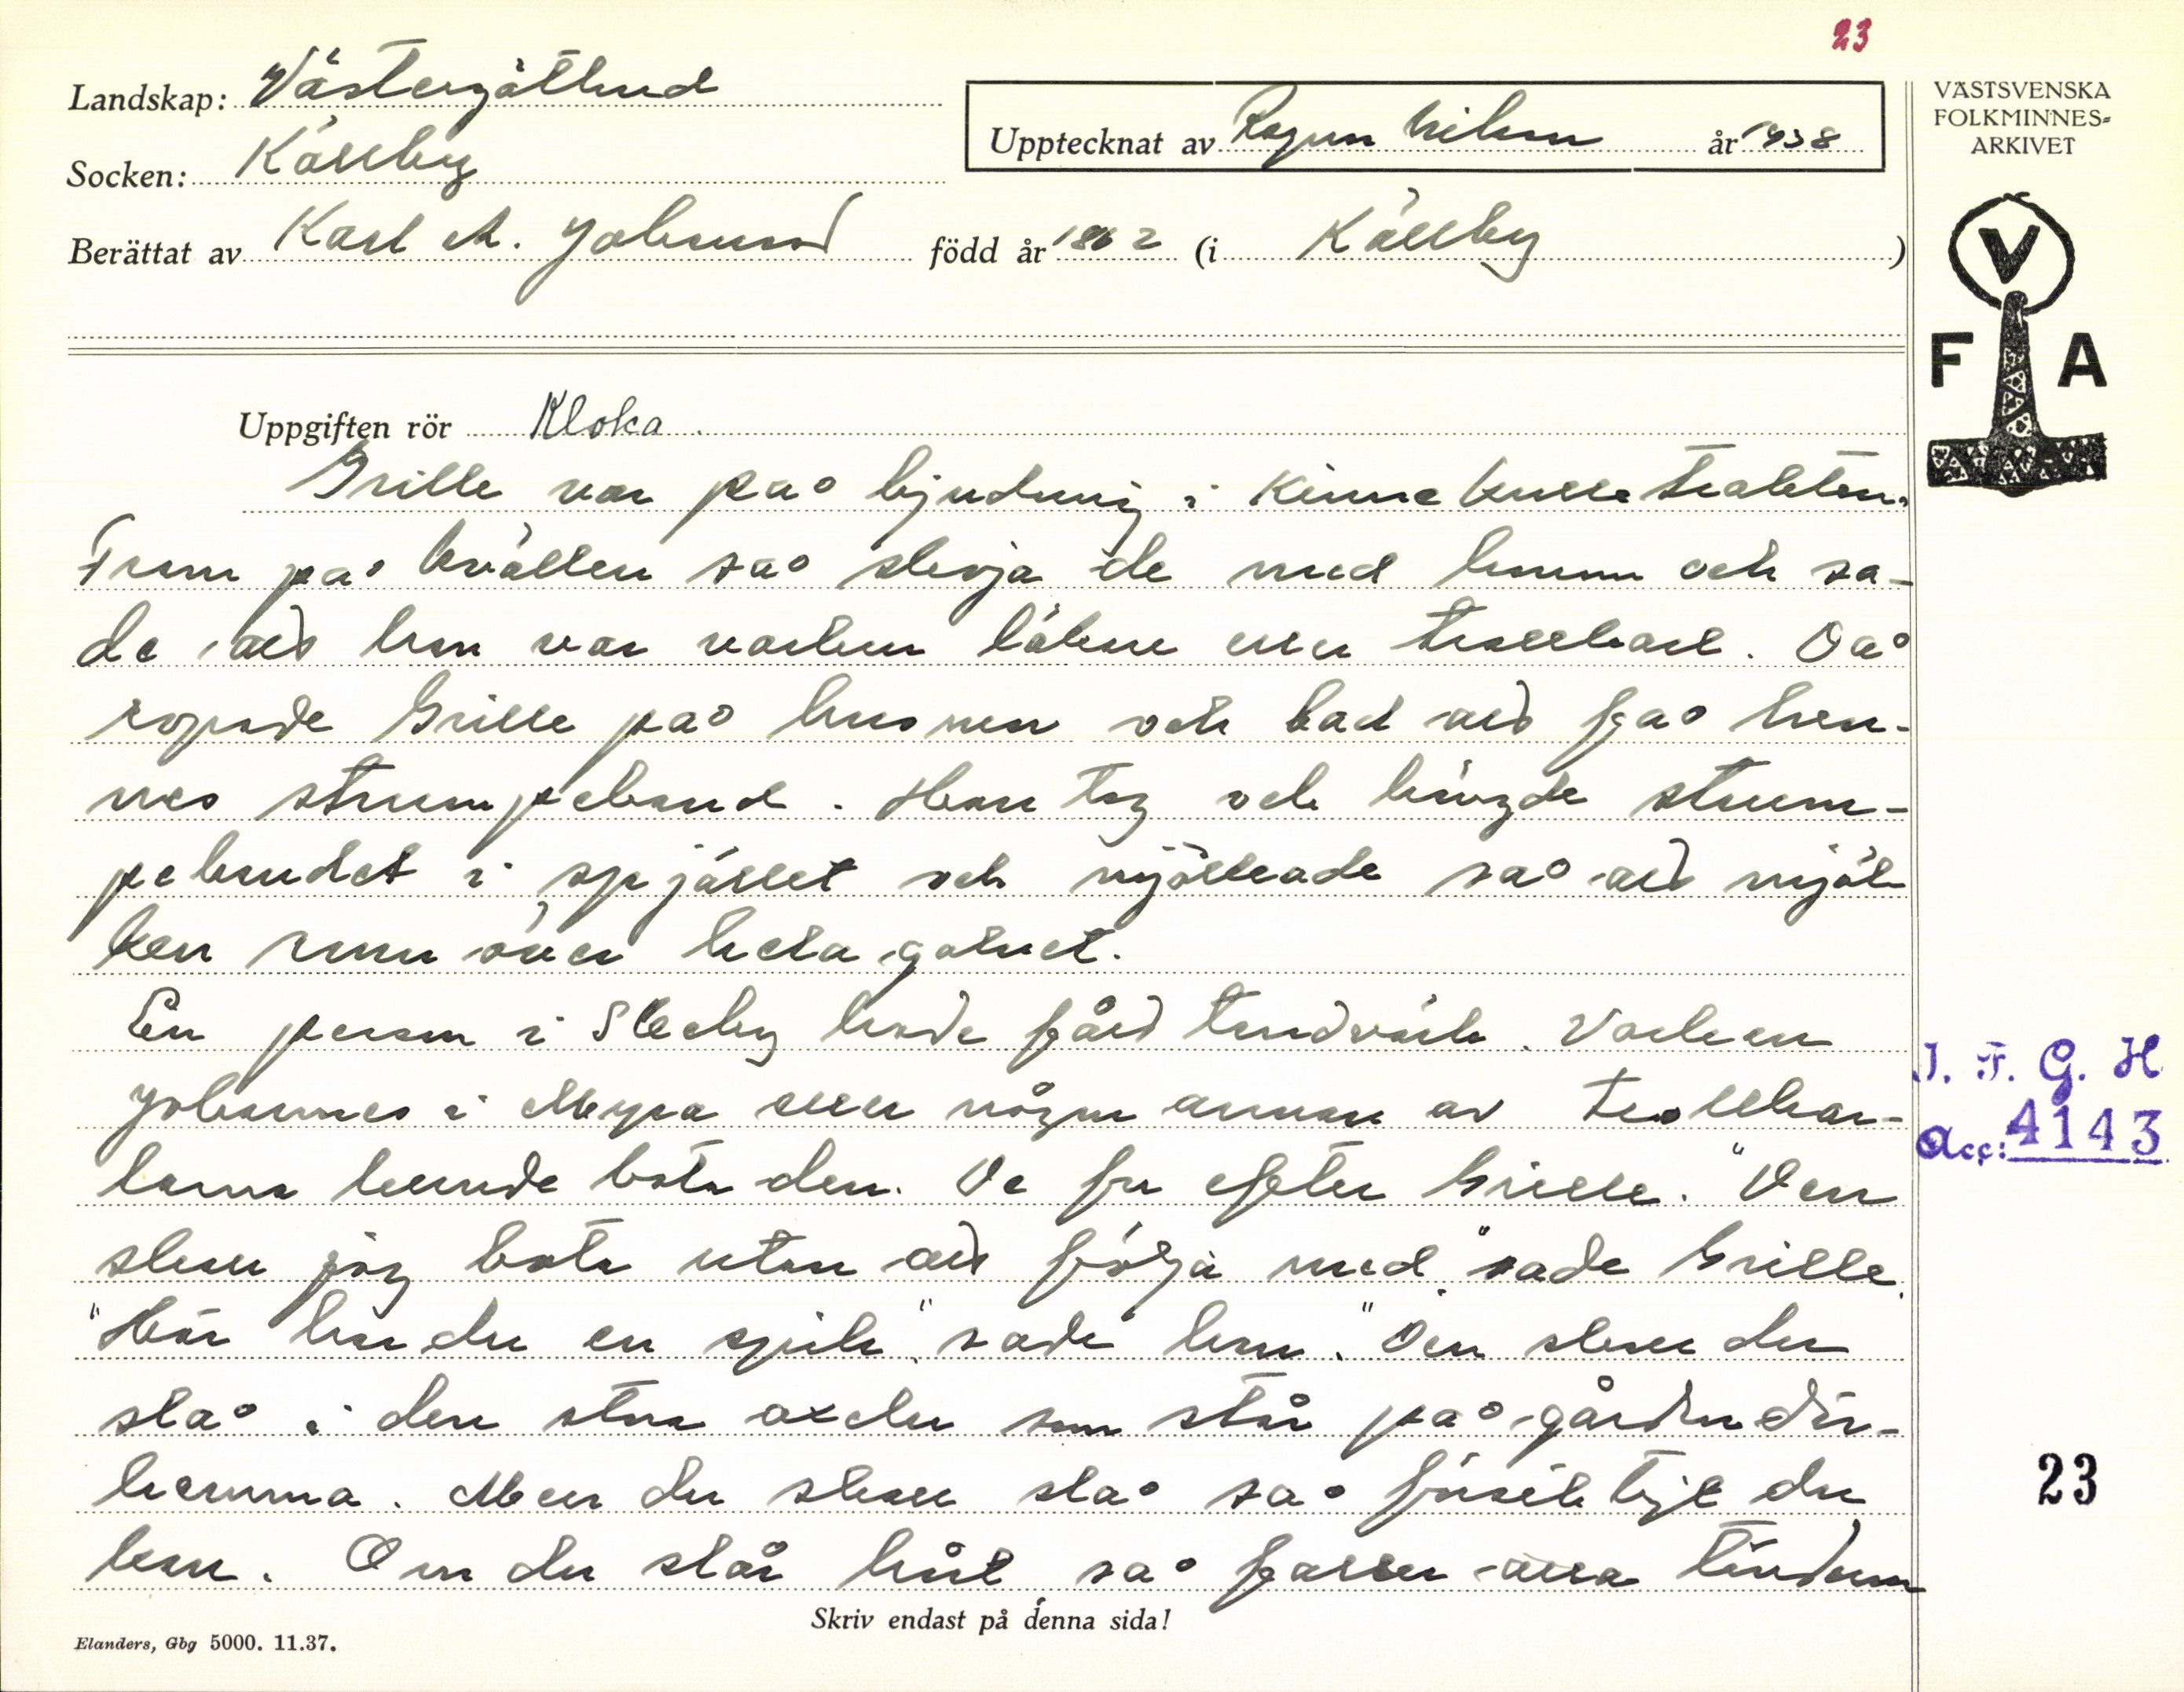 23
Landskap: Västergötland
Socken: Källby
Berättat av Karl A. Johansson född år 1862 (i Källby)
Upptecknat av Ragnar Nilsson år 1938
VÄSTSVENSKA
FOLKMINNES-
ARKIVET
V
F A
Uppgiften rör Kloka.
Grille var på bjudning i Kinnekulletrakten.
Fram på kvällen så skoja de med honom och sa-
de att han var varken löken eller trollkarl. Då
ropade Grille på husmen och bad att få hen-
nes strumpeband. Han tog och hängde strum-
pebandet i spjället och mjölkade så att mjöl
ken rann över hela golvet.
En person i Skeby hade fått tandvärk. Varken
Johannes i Mypa eller någon annan av trollkar-
larna kunde bota den. De for efter Grille. "Den
skall jag bota utan att följa med," sade Grille.
"Här har du en spik," sade han. "Den skall du
slå i den stora axeln som står på gården där-
hemma. Men du skall slå så försiktigt du
kan. Om du slår hårt, så faller alla tänderna
Skriv endast på denna sida!
Elanders, Gbg 5000. 11.37.
I. F. G. H
Acc: 4143
23